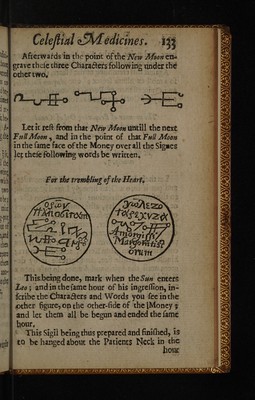 Celeſtial Medicines. 133
Afterwards in the point of the New Moon en-
grave theſe three Characters following under the
other two.
Let it reſt from that New Moon untill the next
Full Moon, and in the point of that Full Moon
in the ſame face of the Money over all the Signes
let theſe following words be written.
For the trembling of the Heart.
This being done, mark when the Sun enters
Leo; and in the ſame hour of his ingreſſion, in-
ſcribe the Characters and Words you ſee in the
other figure, on the other-ſide of the Money;
and let them all be begun and ended the ſame
hour.
This Sigil being thus prepared and finiſhed, is
to be hanged about the Patients Neck in the
hour